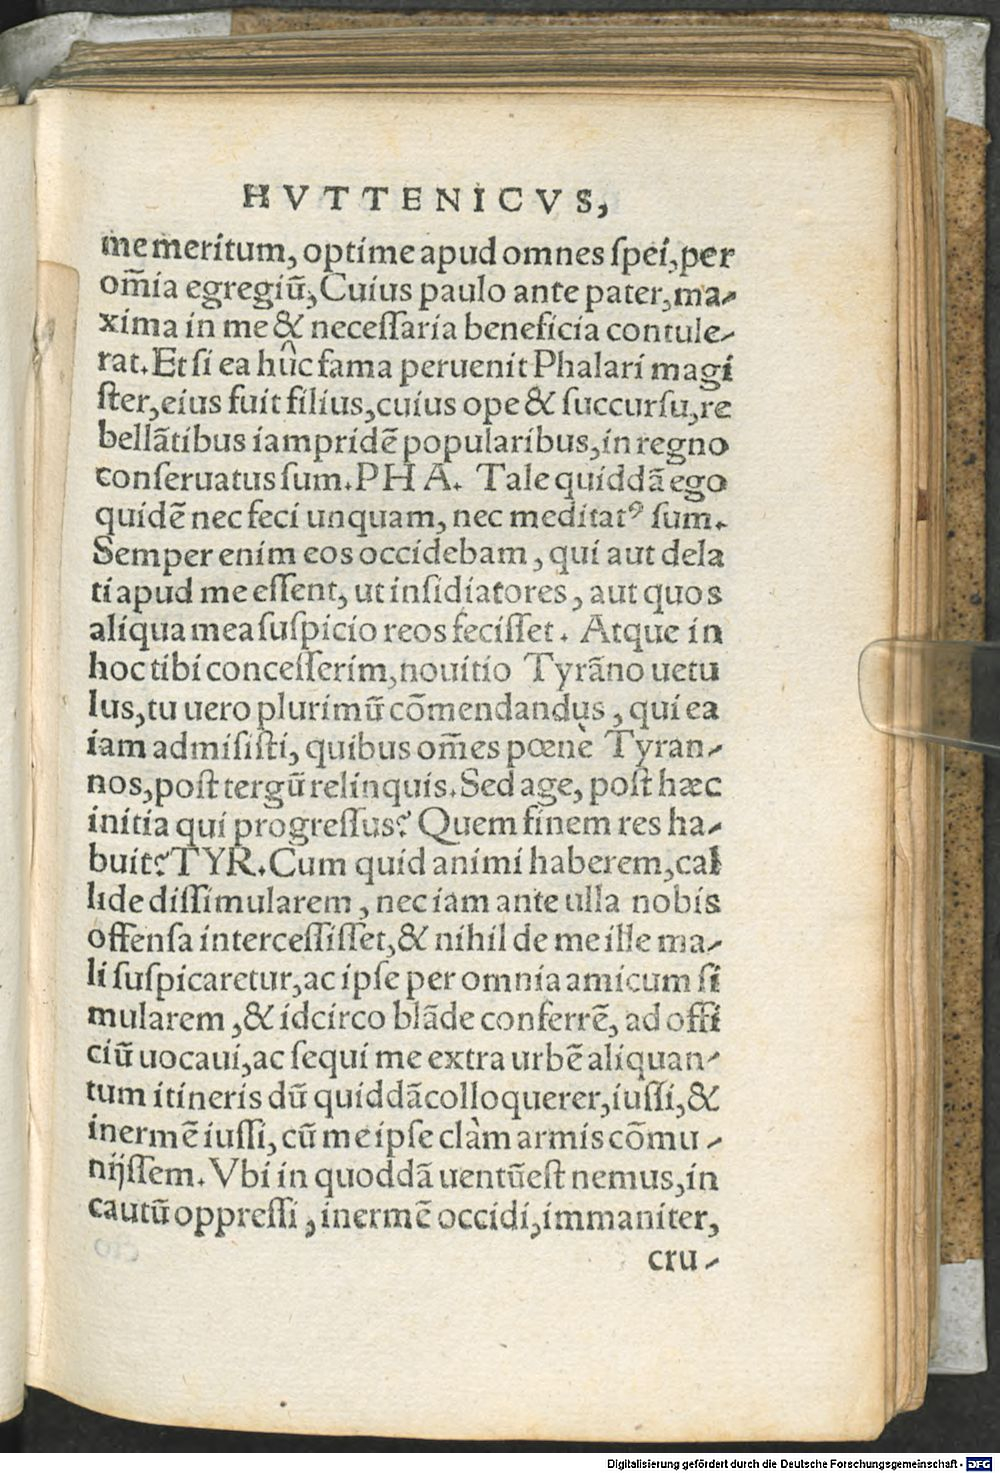 HVTTENICVS,
me meritum, optime apud omnes ſpei, per
om̃ia egregiũ, Cuius paulo ante pater, ma-
xima in me & neceſſaria beneficia contule-
rat. Et ſi ea hûc fama peruenit Phalari magi
ſter, eius fuit filius, cuius ope & ſuccurſu, re
bellãtibus iampridẽ popularibus, in regno
conſeruatus ſum. PHA. Tale quiddã ego
quidẽ nec feci unquam, nec meditatꝰ ſum.
Semper enim eos occidebam, qui aut dela
ti apud me eſſent, ut inſidiatores, aut quos
aliqua mea ſuſpicio reos feciſſet. Atque in
hoc tibi conceſſerim, nouitio Tyrãno uetu
lus, tu uero plurimũ cõmendandus, qui ea
iam admiſiſti, quibus om̃es pœnè Tyran-
nos, poſt tergũ relinquis. Sed age, poſt hæc
initia qui progreſſus? Quem finem res ha-
buit? TYR. Cum quid animi haberem, cal
lide diſſimularem, nec iam ante ulla nobis
offenſa interceſſiſſet, & nihil de me ille ma-
li ſuſpicaretur, ac ipſe per omnia amicum ſi
mularem, & idcirco blãde conferrẽ, ad offi
ciũ uocaui, ac ſequi me extra urbẽ aliquan-
tum itineris dũ quiddã colloquerer, iuſſi, &
inermẽ iuſſi, cũ me ipſe clàm armis cõmu-
nijſſem. Vbi in quoddã uentũ eſt nemus, in
cautũ oppreſſi, inermẽ occidi, immaniter,
cru-
Digitalisierung gefördert durch die Deutsche Forschungsgemeinschaft - DFG